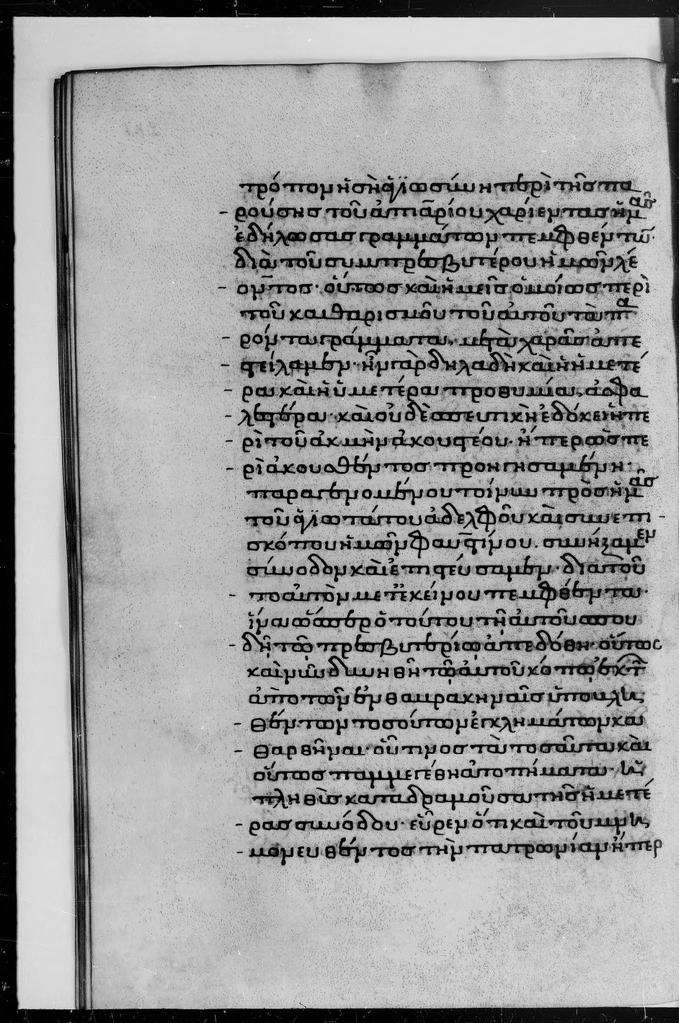 τρό πομ ἡ σὴ φιλία σύν η περὶ τῆς πα
ρούσης τοῦ ἁπιαρίου χαρίεντας ἡμᾶς
ἐδήλωσας γραμμάτων πεμφθέντων
διὰ τοῦ συμπρεσβυτέρου ἡμῶν λέ
οντος· οὕτως καὶ ἡμεῖς ὁμοίως περὶ
τοῦ καθαρισμοῦ τοῦ αὐτοῦ τὰ πα
ρόντα γράμματα μετὰ χαρᾶς ἀπε
στείλαμεν· ἦν γὰρ δηλαδὴ καὶ ἡ ἡμετέ
ρα καὶ ἡ ὑμετέρα προθυμία ἀσφα
λεστέρα· καὶ οὐδὲ ἀσευτικὴ ἐδόκει ἡ πε
ρὶ τοῦ ἀκμὴν ἀκουστέου· ἥπερ ὡς πε
ρὶ ἀκουσθέντος προηγησαμένη·
παραγενομένου τοίνυν πρὸς ἡμᾶς
τοῦ ἁγιωτάτου ἀδελφοῦ καὶ συνεπι
σκόπου ἡμῶν φαυστίνου· συνήξαμεν
σύνοδον καὶ ἐπιστεύσαμεν· διὰ τοῦ
το αὐτὸν μετ' ἐκείνου πεμφθέντα
ἵνα ὥσπερ πρὸ τούτου τῇ αὐτοῦ σπου
δῇ τῷ πρεσβυτερίῳ ἀπεδόθη· οὕτως
καὶ νῦν δυνηθῇ τῷ αὐτοῦ κόπῳ ἐκ τῶν
ἀπὸ τῶν ἐν θαβρακηναῖς ὑποβλη
θέντων τοσούτων ἐγκλημάτων κα
θαρθῆναι· οὗτινος τὰ τοσαῦτα καὶ
οὕτως παμμεγέθη ἀτοπήματα· τὰ
πλήθη καταδραμοῦσα τῆς ἡμετέ
ρας συνόδου· εὗρεν ὅτι καὶ τοῦ μνη
μονευθέντος τὴν πατρωνίαν ἤπερ